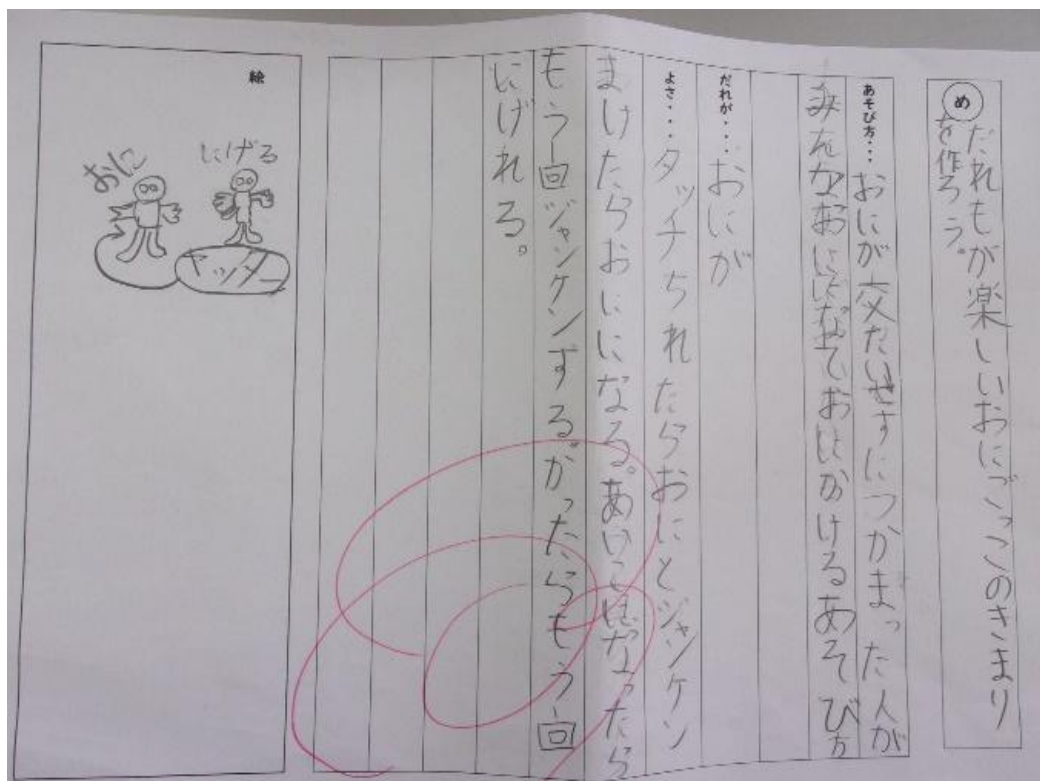 め だれもが楽しいおにごっこのきまり
を作ろう。
あそび方・・・おにが交たいせずにつかまった人が
みんなおにになっておいかけるあそび方
だれが・・・・おにが
よさ・・・・タッチちれたらおにとジャンケン
まけたらおにになる。あいこになったら
もう一回ジャンケンする。かったらもう一回
にげれる。
絵
にげる
おに
ヤッター